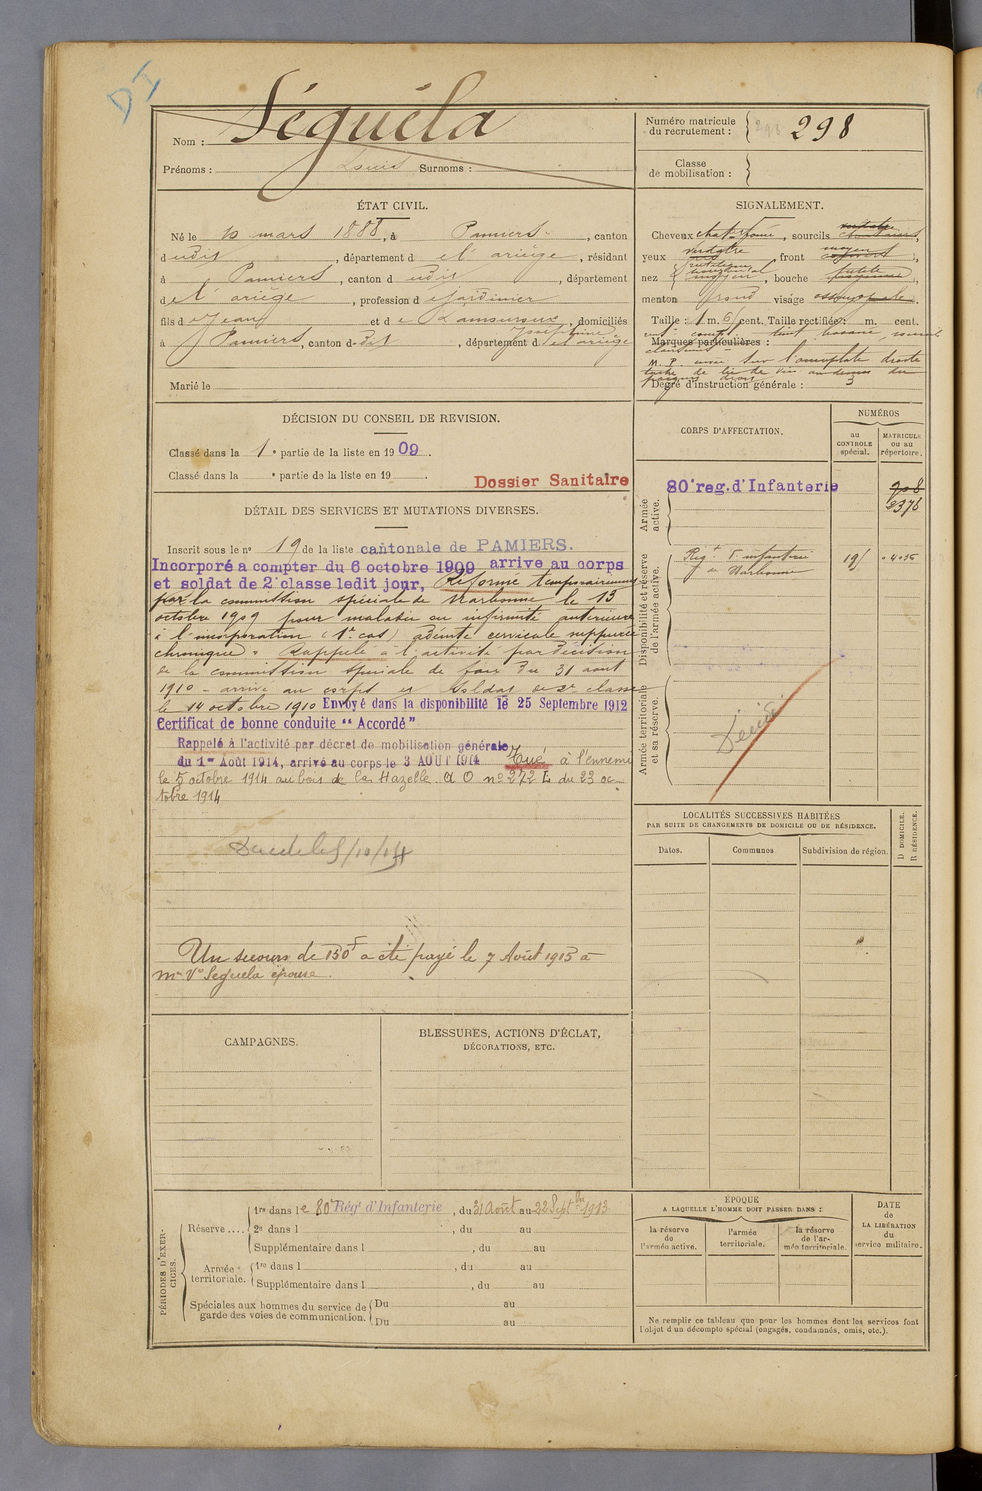 DI
Nom : Séguéla
Prénoms : Louis Surnoms :
Numéro matricule
du recrutement : 298 298
Classe
de mobilisation :
ÉTAT CIVIL.
Né le 10 mars 1888, à Pamiers, canton
dudit, département de l'ariège, résidant
à Pamiers, canton dudit, département
de l'ariège, profession de jardinier
fils de Jean et de Lamouroux Joséphine, domiciliés
à Pamiers, canton dudit, département de l'ariège
Marié le
SIGNALEMENT.
Cheveux chat. foncé, sourcils
yeux verdâtre, front moyen
nez, bouche petite
menton rond visage
Taille : 1 m. 61 cent. Taille rectifiée : m. cent.
teint basané
Marques particulières :
M. P. sur l'omoplate droite
tache de lie de vin au dessus du
Degré d'instruction générale : 3
DÉCISION DU CONSEIL DE REVISION.
Classé dans la 1e partie de la liste en 1909.
Classé dans la e partie de la liste en 19 .
Dossier Sanitaire
DÉTAIL DES SERVICES ET MUTATIONS DIVERSES.
Inscrit sous le no 19 de la liste cantonale de PAMIERS.
Incorporé a compter du 6 octobre 1909 arrive au corps
et soldat de 2e classe ledit jour, Réformé temporairement
par la commission spéciale de Narbonne le 13
octobre 1909 pour maladie ou infirmité antérieure
à l'incorporation (1er cas) adénite cervicale suppurée
chronique. Rappelé à l'activité par décision
de la commission spéciale de foix du 31 aout
1910 - arrivé au corps et soldat de 2e classe
le 14 octobre 1910 Envoyé dans la disponibilité le 25 Septembre 1912
Certificat de bonne conduite "Accordé"
Rappelé à l'activité par décret de mobilisation générale
du 1er Août 1914, arrivé au corps le 3 AOUT 1914 Tué à l'ennemi
le 5 octobre 1914 au bois de la Hazelle A O no 272 L du 23 oc-
tobre 1914
Un secours de 150f a été payé le 7 Août 1915 à
Mme Ve Séguéla épouse.
CORPS D'AFFECTATION.
NUMÉROS
au
CONTROLE
spécial.
MATRICULE
ou au
répertoire.
Armée
active.
80e reg. d'Infanterie
908
2376
Disponibilité et réserve
de l'armée active.
Regt d'infanterie
de Narbonne
Armée territoriale
et sa réserve.
LOCALITÉS SUCCESSIVES HABITÉES
PAR SUITE DE CHANGEMENTS DE DOMICILE OU DE RÉSIDENCE.
Dates.
Communes
Subdivision de région.
D DOMICILE.
R RÉSIDENCE.
CAMPAGNES.
BLESSURES, ACTIONS D'ÉCLAT,
DÉCORATIONS, ETC.
PÉRIODES D'EXER-
CICES.
Réserve .... 1re dans le 80e Régt d'Infanterie, du 31 Août au 22 Septbre 1913
2e dans l , du au
Supplémentaire dans l , du au
Armée
territoriale. 1re dans l , du au
Supplémentaire dans l , du au
Spéciales aux hommes du service de
garde des voies de communication. Du au
Du au
ÉPOQUE
A LAQUELLE L'HOMME DOIT PASSER DANS :
la réserve
de
l'armée active.
l'armée
territoriale.
la réserve
de l'ar-
mée territoriale.
DATE
de
LA LIBÉRATION
du
service militaire.
Ne remplir ce tableau que pour les hommes dont les services font
l'objet d'un décompte spécial (engagés, condamnés, omis, etc.).